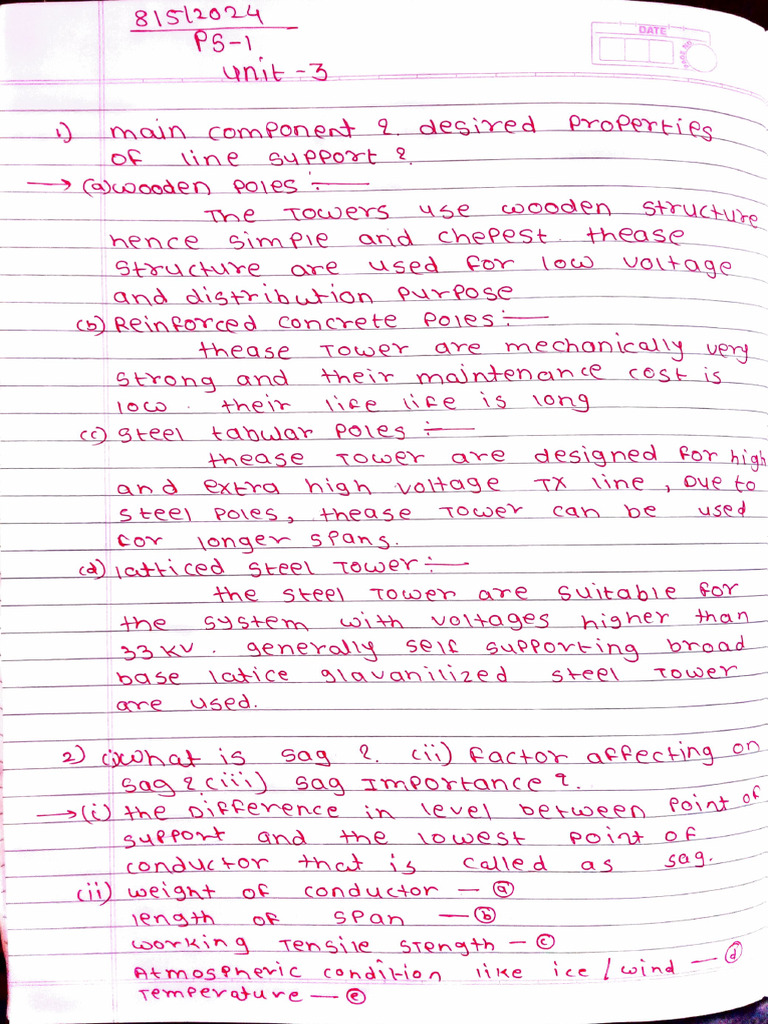 8/5/2024
PS-1
unit-3
DATE
1) main component &. desired properties
of line support ?
→ (a) wooden poles :—
The Towers use wooden structure
hence simple and chepest. thease
structure are used for low voltage
and distribution purpose
(b) Reinforced concrete poles :—
thease Tower are mechanically very
strong and their maintenance cost is
low. their life life is long
(c) steel tabular poles :—
thease Tower are designed for high
and extra high voltage TX line, Due to
steel poles, thease Tower can be used
for longer spans.
(d) latticed steel Tower :—
the steel Tower are suitable for
the system with voltages higher than
33 KV. generally self supporting broad
base latice glavanilized steel Tower
are used.
2) (i) what is sag ?. (ii) factor affecting on
sag ? (iii) sag Importance ?.
→ (i) the Difference in level between point of
support and the lowest point of
conductor that is called as sag.
(ii) weight of conductor — ⓐ
length of span — ⓑ
working Tensile stength — ⓒ
Atmospheric condition like ice / wind — ⓓ
Temperature — ⓔ